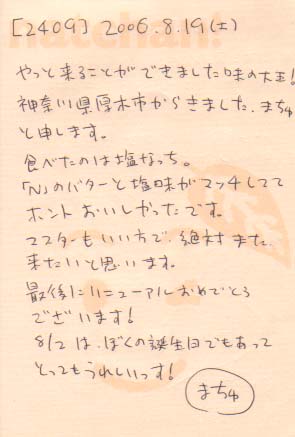 natchan!
[2409] 2006.8.19(土)
やっと来ることができました味の大王!
神奈川県厚木市からきました、まちゅ
と申します。
食べたのは塩なっち。
「N」のバターと塩味がマッチしてて
ホントおいしかったです。
マスターもいい方で、絶対また
来たいと思います。
最後にリニューアルおめでとう
ございます!
8/2は、ぼくの誕生日でもあって
とってもうれしいっす!
まちゅ